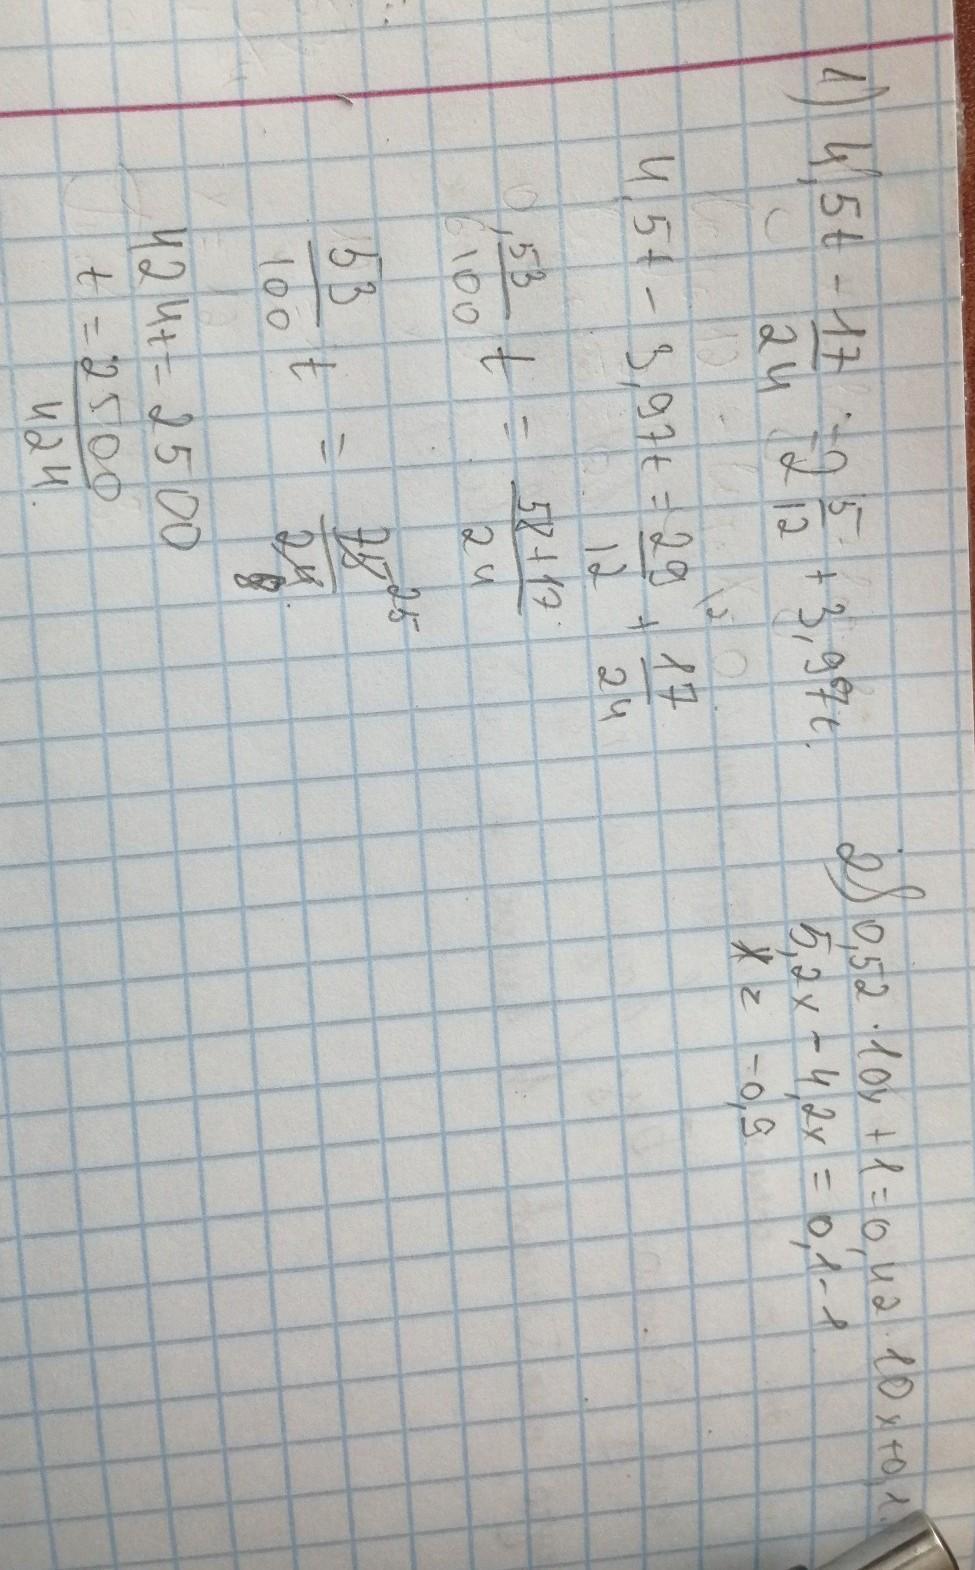 1) 4,5t - 17/24 = 2 5/12 + 3,97t.
4,5t - 3,97t = 29/12 \2 + 17/24
53/100 t = 58+17/24
53/100 t = 75/24 25/8
424t = 2500
t = 2500/424
2) 0,52 · 10x + 1 = 0,42 · 10x + 0,1.
5,2x - 4,2x = 0,1 - 1
x = -0,9